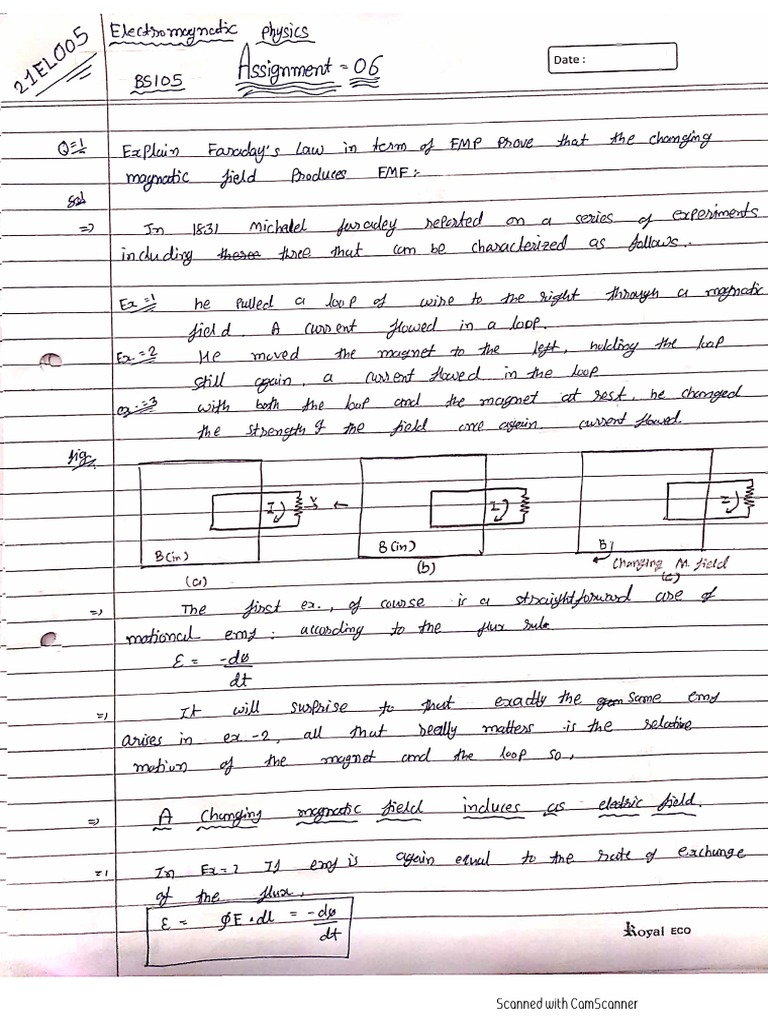 21EL005
Electromagnetic Physics
BS105
Assignment = 06
Date :
Q=1 Explain Faraday's Law in term of EMP Prove that the changing
magnatic field Produces EMF:-
Sol
=> In 1831 Michalel faradey reported on a series of experiments
including three that can be characterized as follows.
Ex=1 he pulled a loop of wire to the right through a magnetic
field. A current flowed in a loop.
Ex=2 He moved the magnet to the left, holding the loop
still again, a current flowed in the loop
ex=3 with both the loop and the magnet at rest, he changed
the strength of the field one again current flowed.
fig
I
I
B(in)
B(in)
B
(a)
(b)
Changing M. field
(c)
=> The first ex., of course is a straightforward ase of
motional emf: according to the flux rule
ε = -dφ
dt
=> It will surprise to that exactly the same emf
arises in ex-2, all that really matters is the relative
motion of the magnet and the loop so,
=> A changing magnatic field induces as eledric field.
=> In Ex=2 If emf is again equal to the rate of exchange
of the flux.
ε = ∮E.dl = -dφ
dt
Royal ECO
Scanned with CamScanner